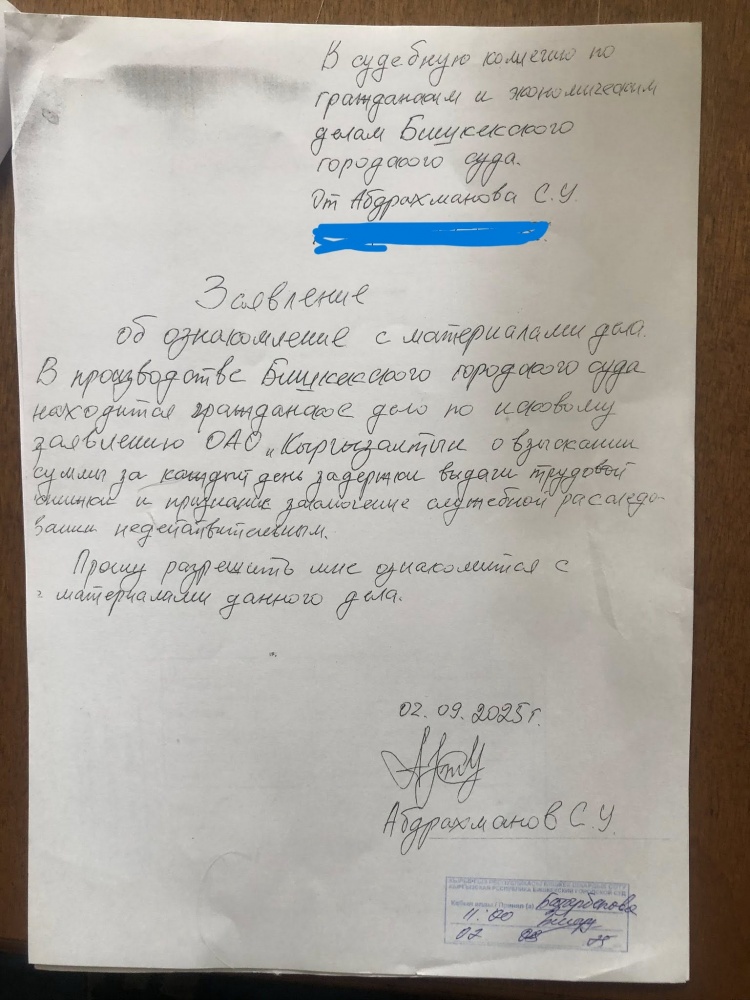 В судебную коллегию по
гражданским и экономическим
делам Бишкекского
городского суда.
От Абдрахманова С.У.
Заявление
об ознакомление с материалами дела.
В производстве Бишкекского городского суда
находится гражданское дело по исковому
заявлению ОАО „Кыргызалтын о взыскании
суммы за каждый день задержки выдачи трудовой
книжки и признание заключение служебной расследо-
вании недействительным.
Прошу разрешить мне ознакомится с
материалами данного дела.
02.09.2025г.
Абдрахманов С.У.
КЫРГЫЗСКАЯ РЕСПУБЛИКА БИШКЕКСКИЙ ГОРОДСКОЙ СУД
Кабыл алды / Принял (а)
11:00
02 09 25